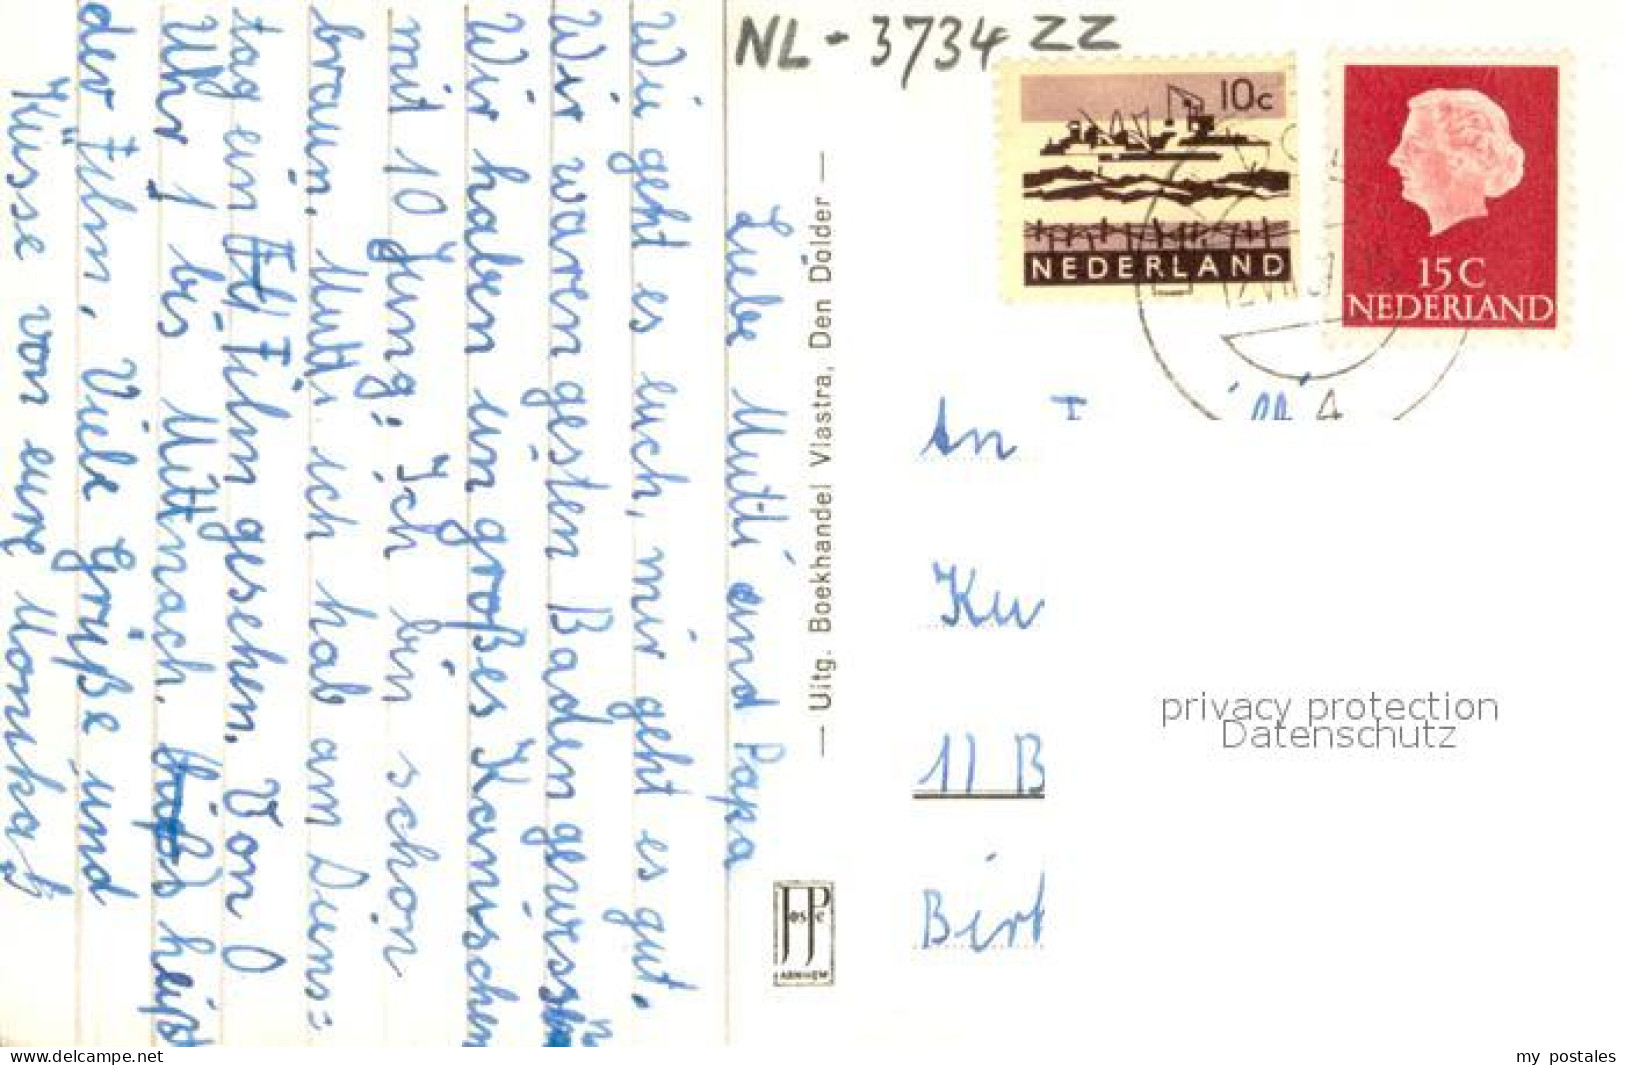 NL-3734 ZZ
10c
NEDERLAND
15C
NEDERLAND
Liebe Mutti und Papa
Wie geht es euch, mir geht es gut.
Wir waren gesten Baden gewesen
Wir haben ein großes Kanischen
mit 10 Jung; Ich bin schon
braun. Mutti ich hab am Diens=
tag ein Film gesehen. Von 0
Uhr 1 bis Mittnach. heißt
der Film, Viele Grüße und
Küsse von eure Monika
— Uitg. Boekhandel Vlastra, Den Dolder —
JosPé
ARNHEM
An
Ku
11 B
Birk
privacy protection
Datenschutz
www.delcampe.net
my_postales